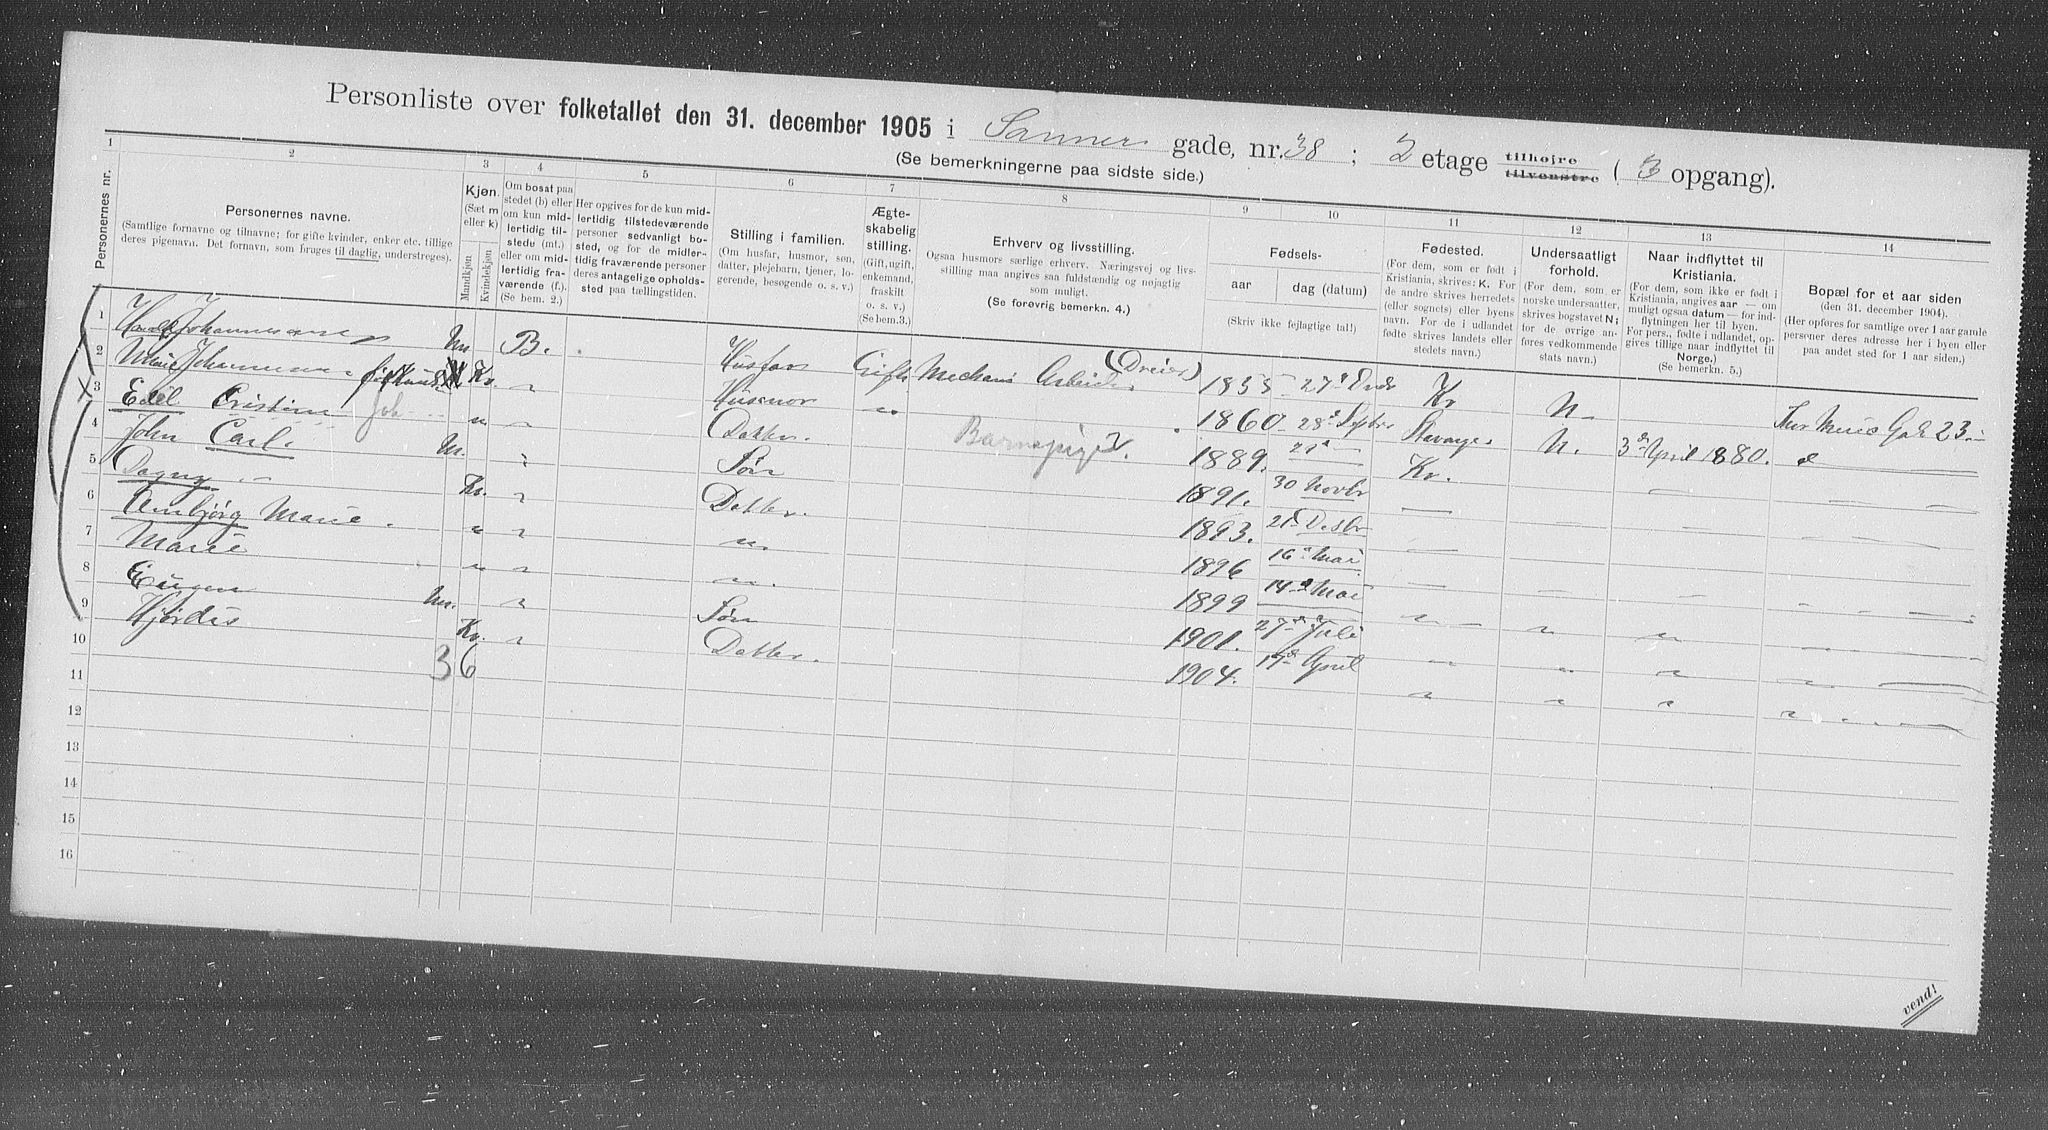 Personliste over folketallet den 31. december 1905 i Sanner gade, nr. 38 ; 2 etage tilhøjre tilvenstre ( 3 opgang).
(Se bemerkningerne paa sidste side.)
1 2 3 4 5 6 7 8 9 10 11 12 13 14
Personernes nr.
Personernes navne.
(Samtlige fornavne og tilnavne; for gifte kvinder, enker etc. tillige
deres pigenavn. Det fornavn, som bruges til daglig, understreges).
Kjøn.
(Sæt m
eller k)
Mandkjøn
Kvindekjøn
Om bosat paa
stedet (b) eller
om kun mid-
lertidig til-
stede (mt.)
eller om mid-
lertidig fra-
værende (f.).
(Se bem. 2.)
Her opgives for de kun mid-
lertidig tilstedeværende
personer sedvanligt bo-
sted, og for de midler-
tidig fraværende personer
deres antagelige opholds-
sted paa tællingstiden.
Stilling i familien.
(Om husfar, husmor, søn,
datter, plejebarn, tjener, lo-
gerende, besøgende o. s. v.)
Ægte-
skabelig
stilling.
(Gift, ugift,
enkemand,
fraskilt
o. s. v.)
(Se bem.3.)
Erhverv og livsstilling.
Ogsaa husmors særlige erhverv. Næringsvej og livs-
stilling maa angives saa fuldstændig og nøjagtig
som muligt.
(Se forøvrig bemerkn. 4.)
Fødsels-
aar
dag (datum)
(Skriv ikke fejlagtige tal!)
Fødested.
(For dem, som er født i
Kristiania, skrives: K. For
de andre skrives herredets
(eller sognets) eller byens
navn. For de i udlandet
fødte skrives landets eller
stedets navn.)
Undersaatligt
forhold.
(For dem, som er
norske undersaatter,
skrives bogstavet N;
for de øvrige an-
føres vedkommende
stats navn.)
Naar indflyttet til
Kristiania.
(For dem, som ikke er født i
Kristiania, angives aar — om
muligt ogsaa datum — for ind-
flytningen her til byen.
For pers., fødte i udlandet, op-
gives tillige naar indflyttet til
Norge.)
(Se bemerkn. 5.)
Bopæl for et aar siden
(den 31. december 1904).
(Her opføres for samtlige over 1 aar gamle
personer deres adresse her i byen eller
paa andet sted for 1 aar siden.)
1 Johannessen m B. Husfar Gift Mechani Arbeider (Dreier) 1855 27 Kr N. Gade 23
2 Marie Johannessen Kv. " Husmor " 1860 28 Septbr Stavanger N. 3 April 1880.
3 Edel Cristine Joh " " Datter. Barnepige 1889. 21 Kr.
4 John Carl m. " Søn 1891. 30 Novbr
5 Dagny Kv. " Datter. 1893. 21 Desbr
6 Annbjørg Marie " " " 1896 16 Mai
7 Marie " " " 1899 14 Mai
8 Eugen m. " Søn 1901. 27 Juli
9 Hjørdis Kv. " Datter. 1904. 17 April
10
3 6
11
12
13
14
15
16
vend!